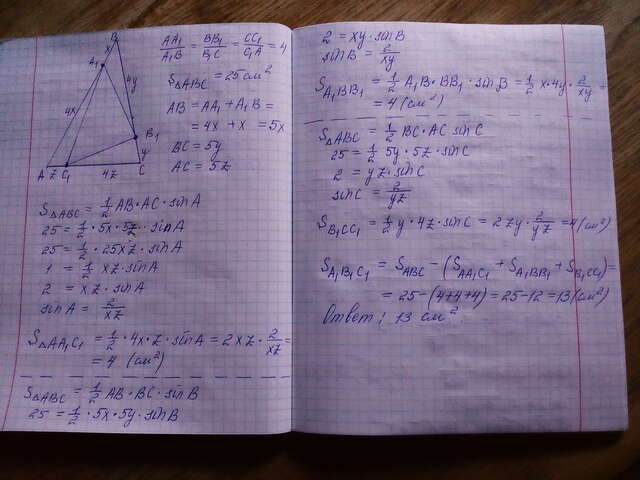 B
x
A₁
4y
4x
B₁
y
A z C₁ 4z C
AA₁/A₁B = BB₁/B₁C = CC₁/C₁A = 4
S△ABC = 25 см²
AB = AA₁ + A₁B =
= 4x + x = 5x
BC = 5y
AC = 5z
S△ABC = 1/2 AB · AC · sin A
25 = 1/2 · 5x · 5z · sin A
25 = 1/2 · 25xz · sin A
1 = 1/2 xz · sin A
2 = xz · sin A
sin A = 2/xz
S△AA₁C₁ = 1/2 · 4x · z · sin A = 2xz · 2/xz =
= 4 (см²)
S△ABC = 1/2 AB · BC · sin B
25 = 1/2 · 5x · 5y · sin B
2 = xy · sin B
sin B = 2/xy
S A₁BB₁ = 1/2 A₁B · BB₁ · sin B = 1/2 x · 4y · 2/xy =
= 4 (см²)
S△ABC = 1/2 BC · AC sin C
25 = 1/2 5y · 5z · sin C
2 = yz · sin C
sin C = 2/yz
S B₁CC₁ = 1/2 y · 4z · sin C = 2zy · 2/yz = 4 (см²)
S A₁B₁C₁ = S ABC − (S AA₁C₁ + S A₁BB₁ + S B₁CC₁) =
= 25 − (4+4+4) = 25 − 12 = 13 (см²)
Ответ: 13 см²